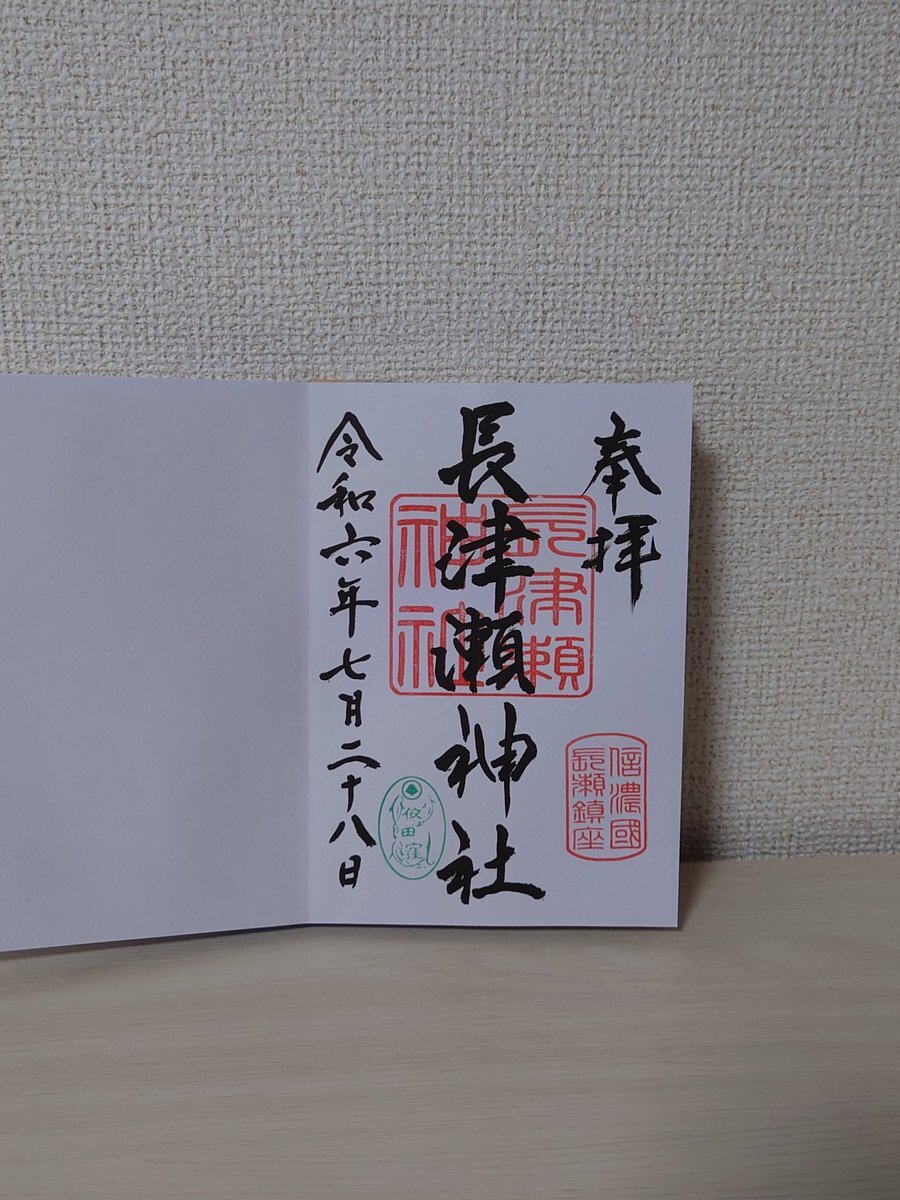 奉拝
長津瀬神社
令和六年七月二十八日
長津瀬
神社
信濃國
長瀬鎮座
依田窪